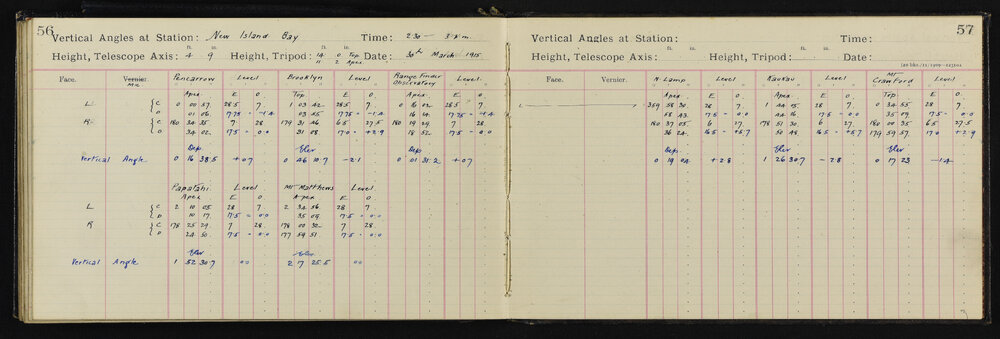 56
Vertical Angles at Station: New Island Bay Time: 2.30 — 3 p.m.
ft. in. ft. in.
Height, Telescope Axis: 4 9 Height, Tripod: 14 0 Top Date: 30th March 1915
11 2 Apex
Face. Vernier. Pencarrow Level Brooklyn Level Range Finder Observatory Level
Apex E O Top E O Apex E O
L { C 0 00 57 28.5 7 1 03 42 28.5 7 0 16 02 28.5 7
{ D 01 06 17.75 = -1.4 03 45 17.75 = -1.4 16 14 17.75 = -1.4
R { C 180 34 35 7 28 179 31 46 6.5 27.5 180 19 29 7 28
{ D 34 02 17.5 = 0.0 31 08 17.0 = +2.9 18 52 17.5 = 0.0
Dep Elev Dep
Vertical Angle 0 16 38.5 +0.7 0 46 10.7 -2.1 0 01 31.2 +0.7
Papatahi Level Mt Matthews Level
Apex E O Apex E O
L { C 2 10 05 28 7 2 34 56 28 7
{ D 10 17 17.5 = 0.0 35 09 17.5 = 0.0
R { C 178 25 29 7 28 178 00 32 7 28
{ D 24 50 17.5 = 0.0 177 59 51 17.5 = 0.0
Elev Elev
Vertical Angle 1 52 30.7 0.0 2 17 25.5 0.0
57
Vertical Angles at Station: Time:
ft. in. ft. in.
Height, Telescope Axis: Height, Tripod: Date:
Face. Vernier. N Lamp Level Kaukau Level Mt Crawford Level
Apex E O Apex E O Apex E O
L 359 58 30 28 7 1 44 15 28 7 0 34 55 28 7
58 43 17.5 = 0.0 44 16 17.5 = 0.0 35 09 17.5 = 0.0
180 37 05 6 27 178 51 30 6 27 180 00 35 6.5 27.5
36 24 16.5 = +5.7 50 49 16.5 = +5.7 179 59 57 17.0 = +2.9
Dep Elev Elev
0 19 04 +2.8 1 26 30.7 -2.8 0 17 23 -1.4